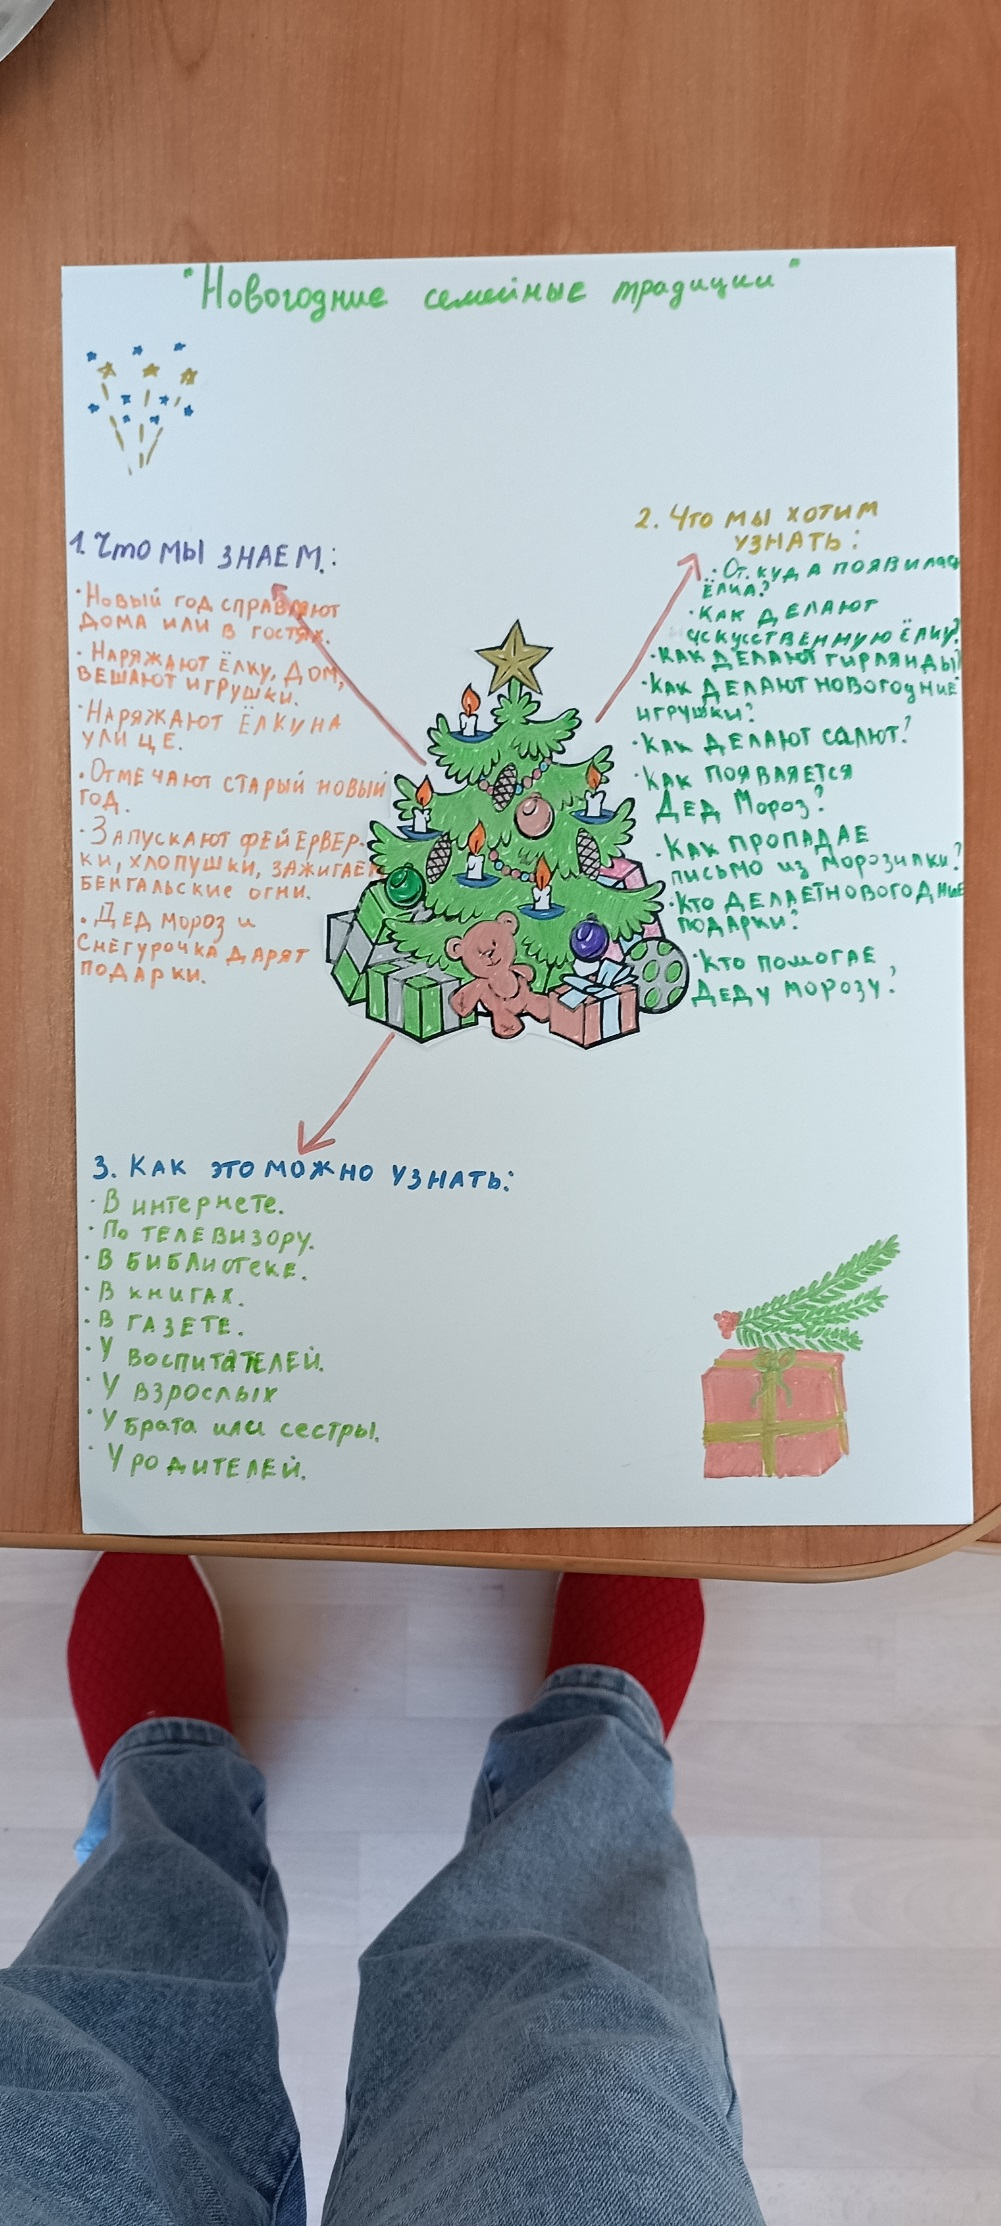 "Новогодние семейные традиции"
1. Что мы знаем:
· Новый год справляют
дома или в гостях.
· Наряжают ёлку, дом,
вешают игрушки.
· Наряжают ёлку на
улице.
· Отмечают старый новый
год.
· Запускают фейервер-
ки, хлопушки, зажигает
бенгальские огни.
· Дед мороз и
Снегурочка дарят
подарки.
2. Что мы хотим
узнать:
· От куда появилась
ёлка?
· Как делают
искусственную ёлку?
· Как делают гирлянды?
· Как делают новогодние
игрушки?
· Как делают салют?
· Как появляется
Дед Мороз?
· Как пропадае
письмо из морозилки?
· Кто делает новогодние
подарки?
· Кто помогае
Деду морозу?
3. Как это можно узнать:
· В интернете.
· По телевизору.
· В библиотеке.
· В книгах.
· В газете.
· У воспитателей.
· У взрослых
· У брата или сестры.
· У родителей.